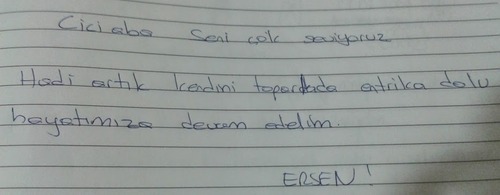 Cici aba Seni çok seviyoruz
Hadi artık kendini toparlada entrika dolu
hayatımıza devam edelim.
ERSEN